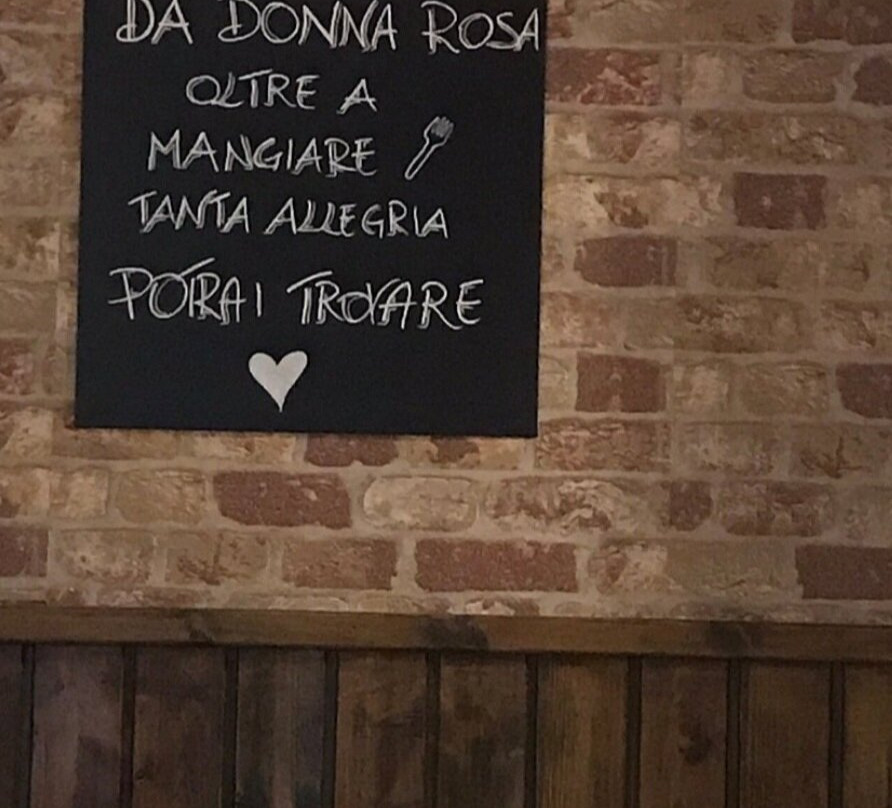 DA DONNA ROSA
OLTRE A
MANGIARE
TANTA ALLEGRIA
POTRAI TROVARE